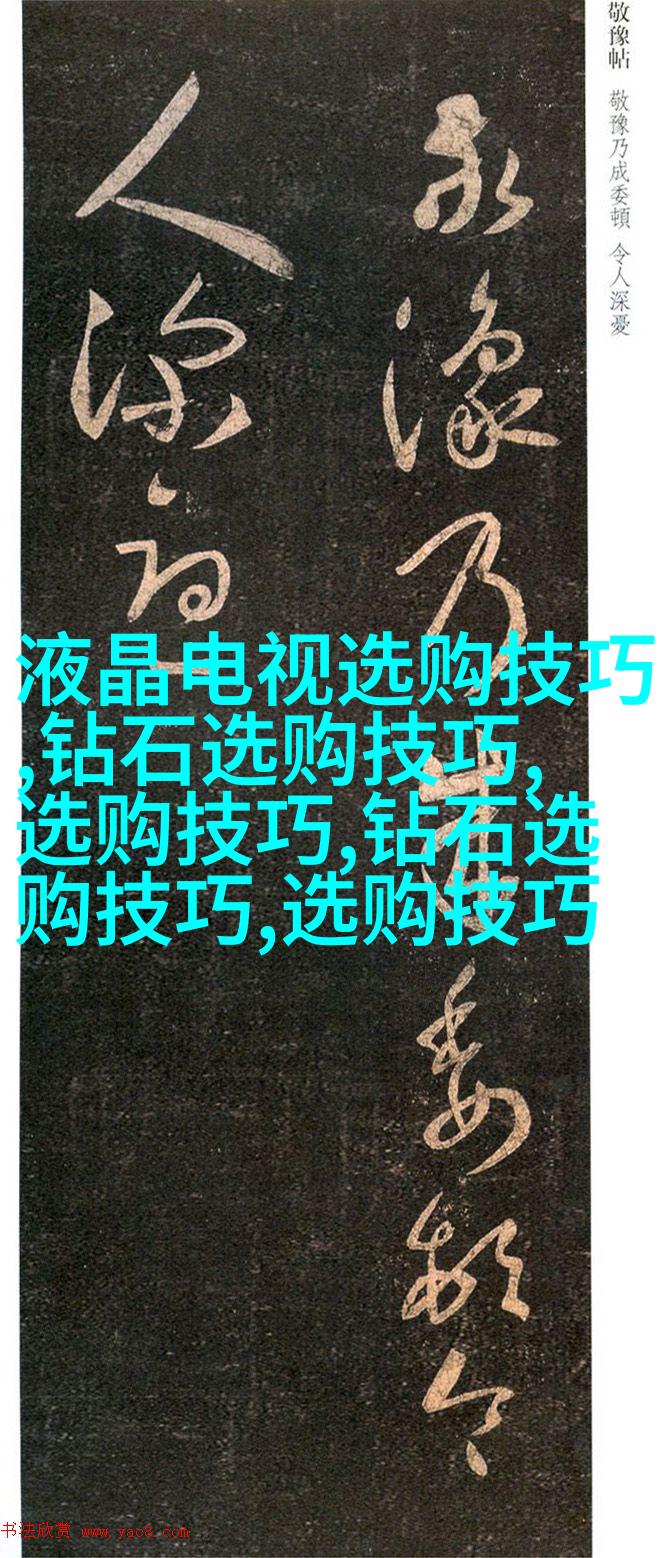 敬豫帖 敬豫乃成委頓 令人深憂
敬豫乃成委頓令
人深憂
液晶电视选购技巧
,钻石选购技巧,
选购技巧,钻石选
购技巧,选购技巧
书法欣赏 www.yac8.com